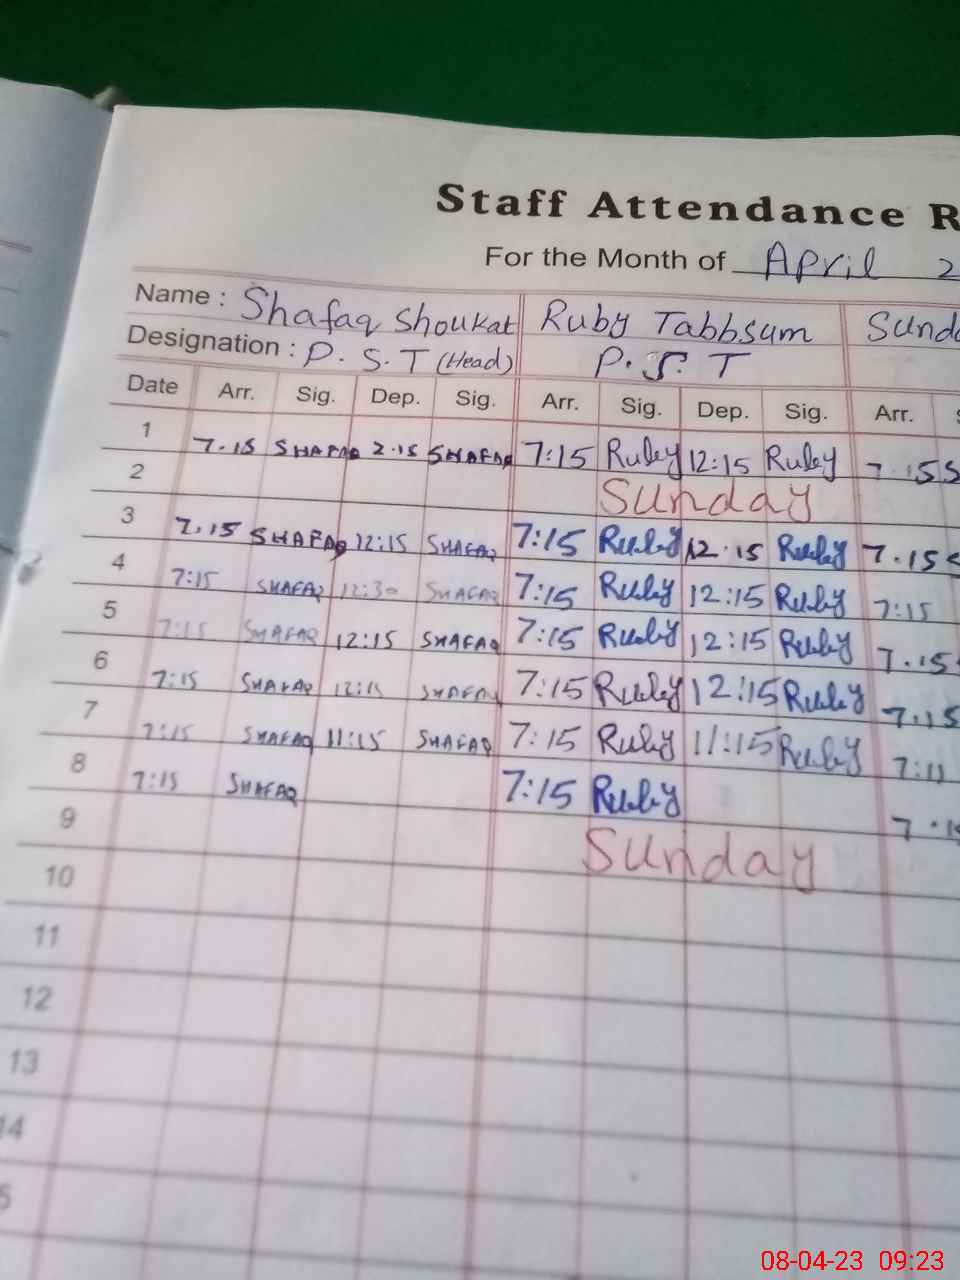 Staff Attendance R
For the Month of April 2
Name : Shafaq Shoukat Ruby Tabbsum Sund
Designation : P.S.T (Head) P.S.T
Date Arr. Sig. Dep. Sig. Arr. Sig. Dep. Sig. Arr. S
1 7.15 SHAFAQ 2.15 SHAFAQ 7:15 Ruby 12:15 Ruby 7.15 S
2 Sunday
3 7.15 SHAFAQ 12:15 SHAFAQ 7:15 Ruby 12.15 Ruby 7.15 S
4 7:15 SHAFAQ 12:30 SHAFAQ 7:15 Ruby 12:15 Ruby 7:15
5 7:15 SHAFAQ 12:15 SHAFAQ 7:15 Ruby 12:15 Ruby 7.15
6 7:15 SHAFAQ 12:15 SHAFAQ 7:15 Ruby 12:15 Ruby 7.15
7 7:15 SHAFAQ 11:15 SHAFAQ 7:15 Ruby 11:15 Ruby
8 7:15 SHAFAQ 7:15 Ruby
9 Sunday
10
11
12
13
14
5
08-04-23 09:23